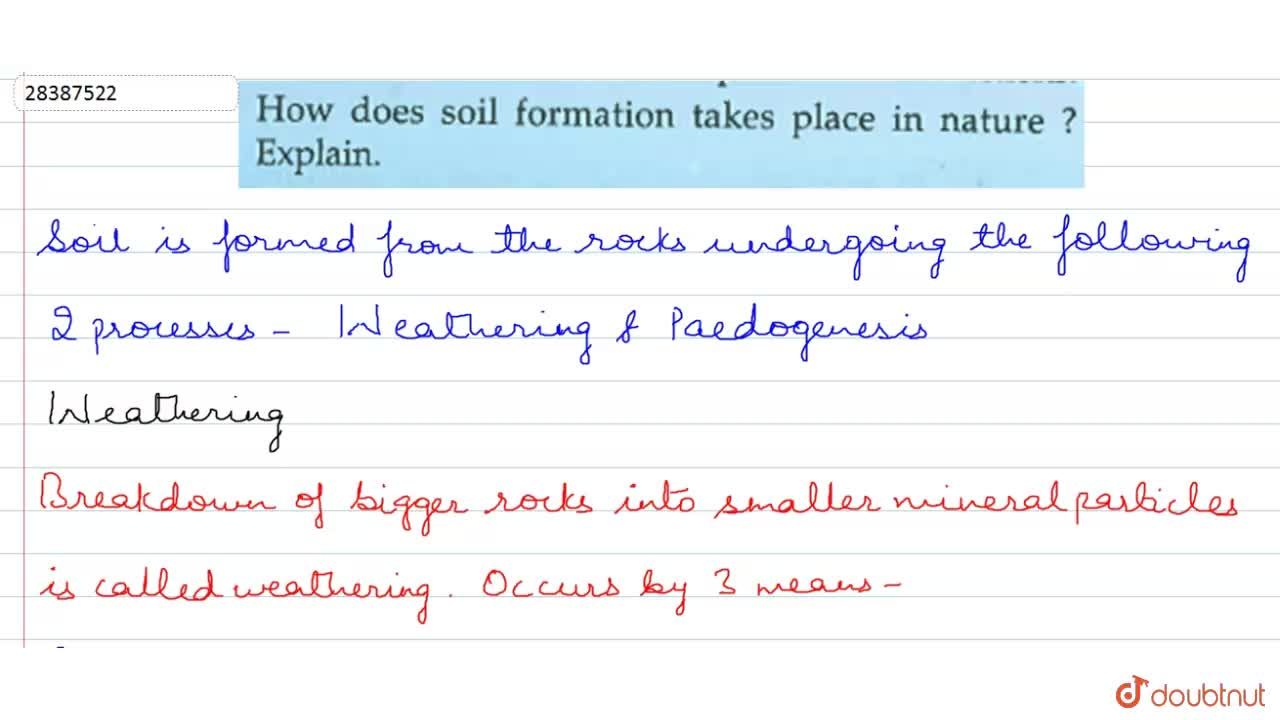 28387522
How does soil formation takes place in nature ?
Explain.
Soil is formed from the rocks undergoing the following
2 processes - Weathering & Paedogenesis
Weathering
Breakdown of bigger rocks into smaller mineral particles
is called weathering. Occurs by 3 means -
doubtnut